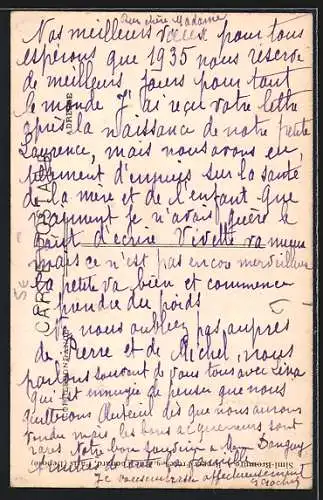 Bien chère Madame
Nos meilleurs vœux pour tous
espérons que 1935 nous réserve
de meilleurs jours pour tout
le monde J'ai reçu votre lettre
après la naissance de notre petite
Laurence, mais nous avons eu
tellement d'ennuis sur la santé
de la mère et de l'enfant que
vraiment je n'avais guère le
d'écrire Vivette va mieux
mais ce n'est pas encore merveilleux
La petite va bien et commence
à prendre du poids
Ne nous oubliez pas auprès
de Pierre et de Michel, nous
parlons souvent de vous tous avec
qui est ennuyée de penser que nous
quitterions
vendu mais les bons acquéreurs sont
rares. Notre bon souvenir à
et à toute votre famille
Je vous embrasse affectueusement
CARTE POSTALE
ADRESSE
CORRESPONDANCE